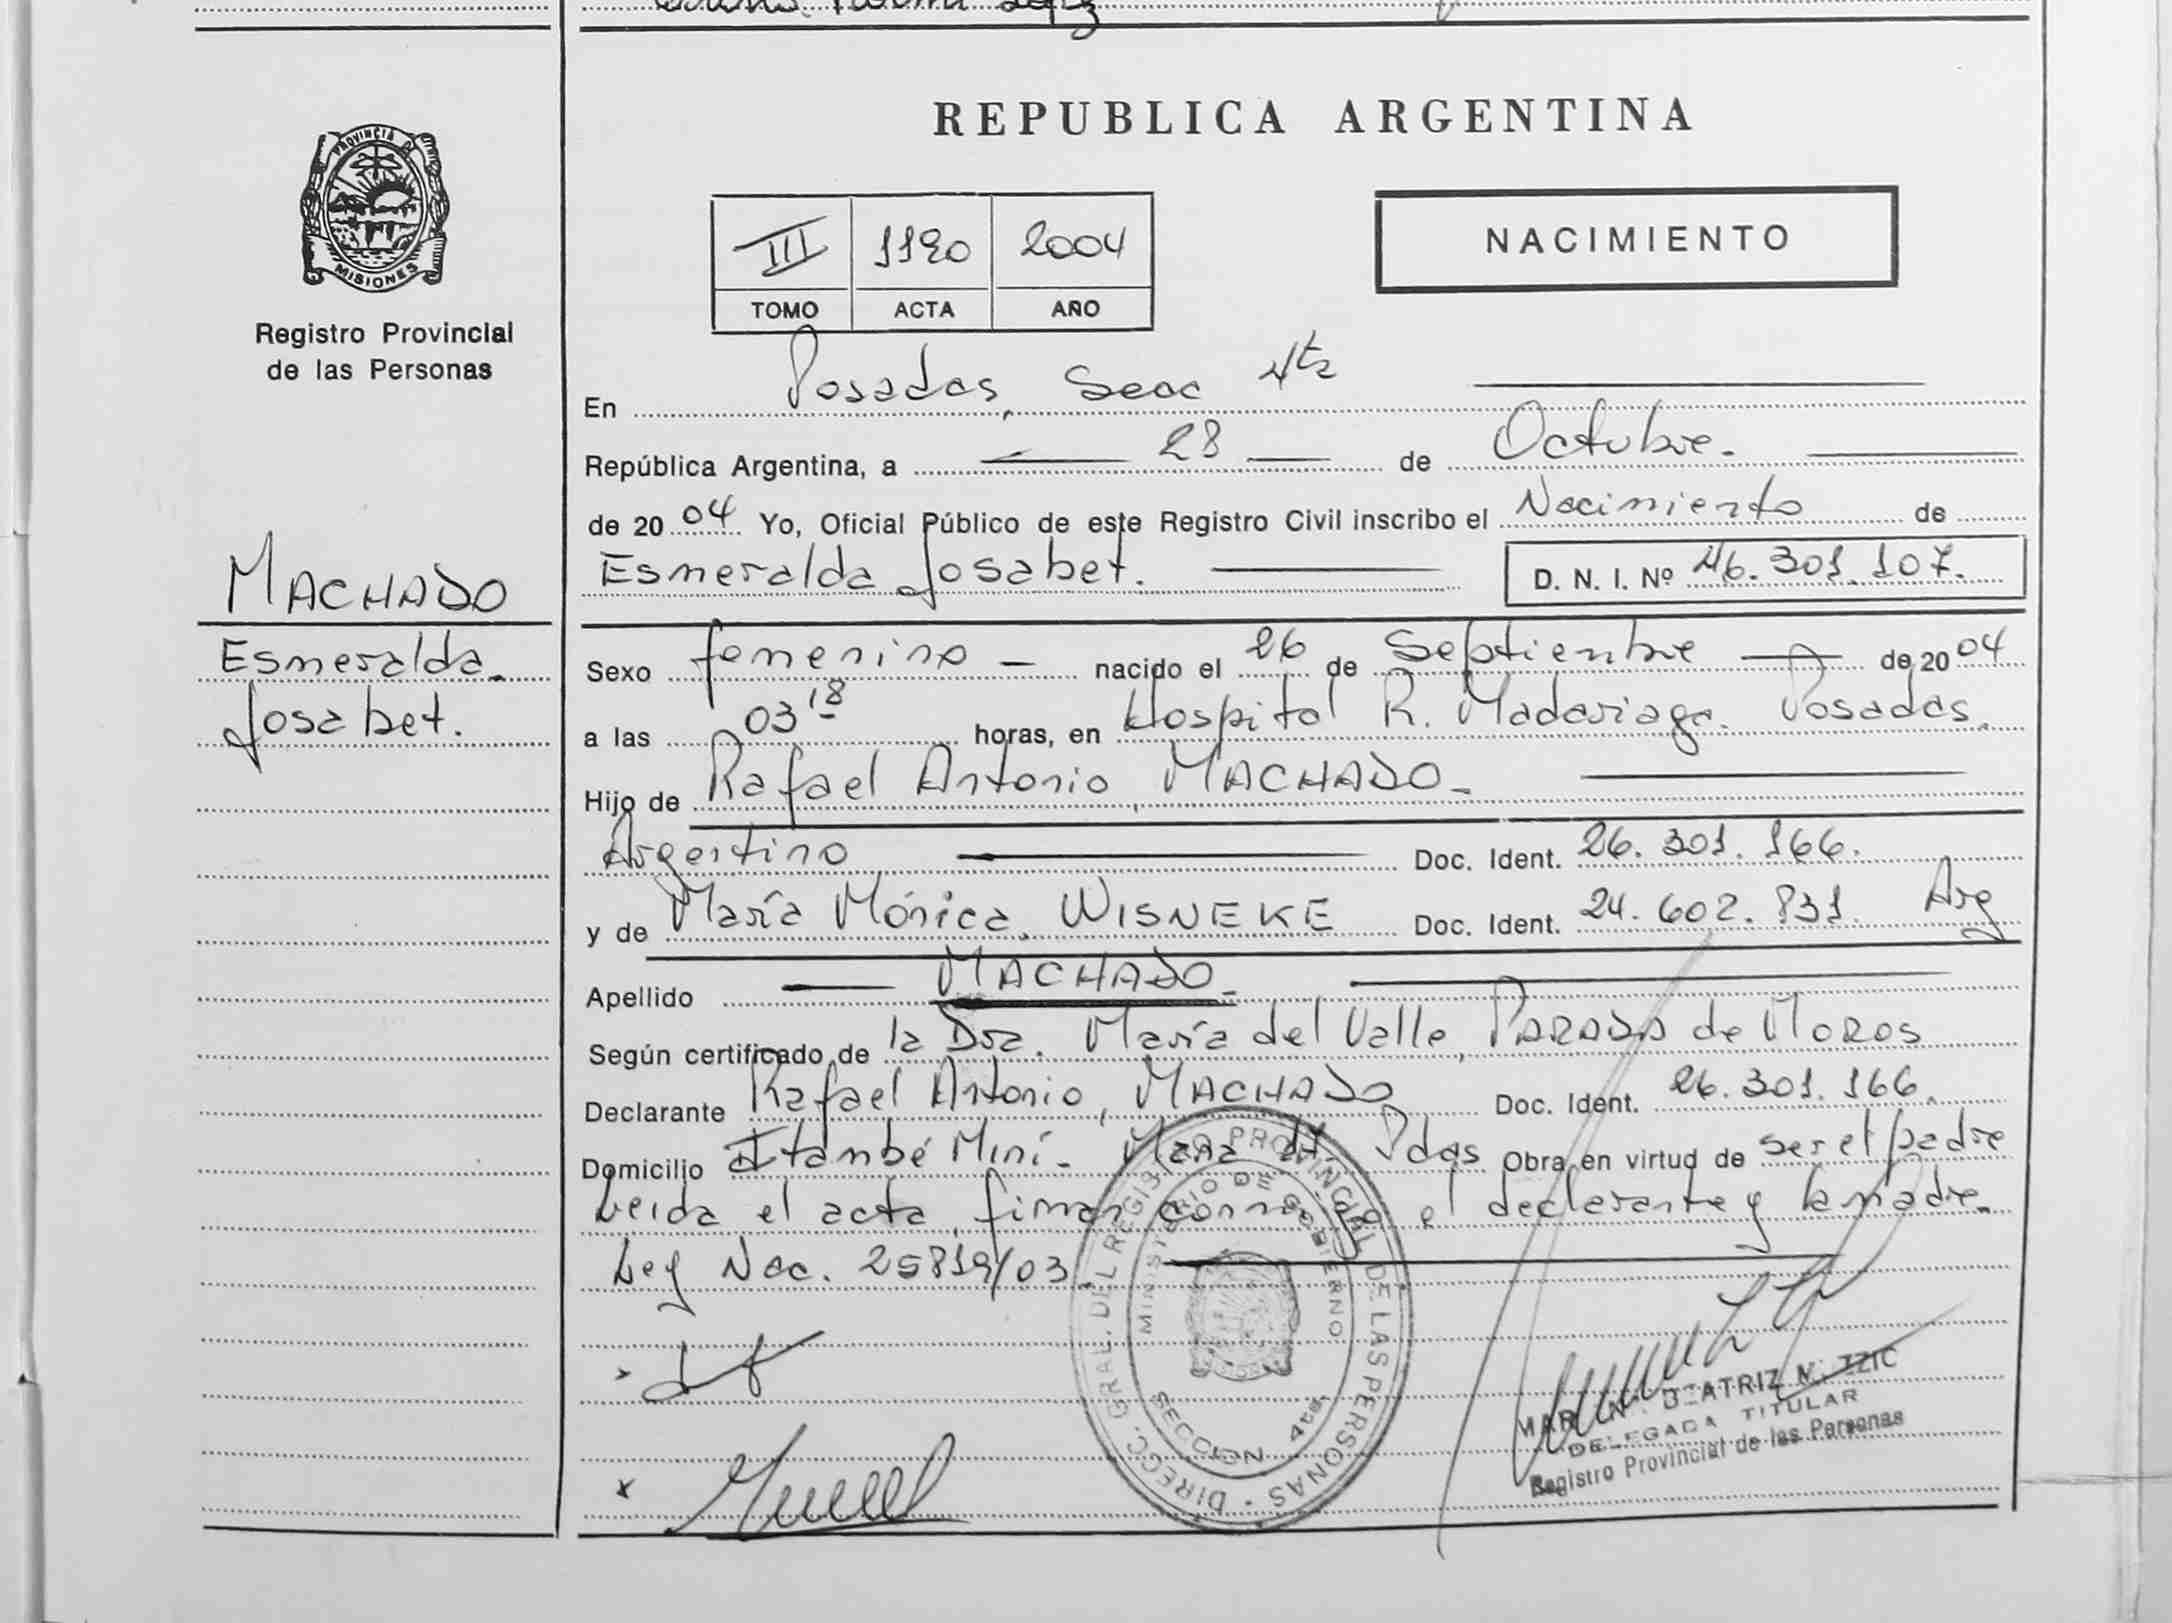 REPUBLICA ARGENTINA
PROVINCIA DE
MISIONES
Registro Provincial
de las Personas
III 1190 2004
TOMO ACTA AÑO
NACIMIENTO
En Posadas, Secc 4ta
República Argentina, a 28 de Octubre.
de 2004 Yo, Oficial Público de este Registro Civil inscribo el Nacimiento de
Esmeralda Josabet. D. N. I. Nº 46.301.107.
MACHADO
Esmeralda
Josabet.
Sexo femenino nacido el 26 de Septiembre de 2004
a las 03 18 horas, en Hospital R. Madariaga. Posadas.
Hijo de Rafael Antonio MACHADO
Argentino Doc. Ident. 26.301.166.
y de María Mónica, WISNEKE Doc. Ident. 24.602.831. Arg
Apellido MACHADO
Según certificado de la Dra. María del Valle, PARADA de MOROS
Declarante Rafael Antonio, MACHADO Doc. Ident. 26.301.166.
Domicilio Itambé Miní- Pdas Obra en virtud de ser el padre
Leida el acta, firman el declarante y la madre.
Ley Nac. 25819/03
DIRECC. GRAL. DEL REGISTRO PROVINCIAL DE LAS PERSONAS
MINISTERIO DE GOBIERNO
SECCION 4ta.
BEATRIZ
DELEGADA TITULAR
Registro Provincial de las Personas